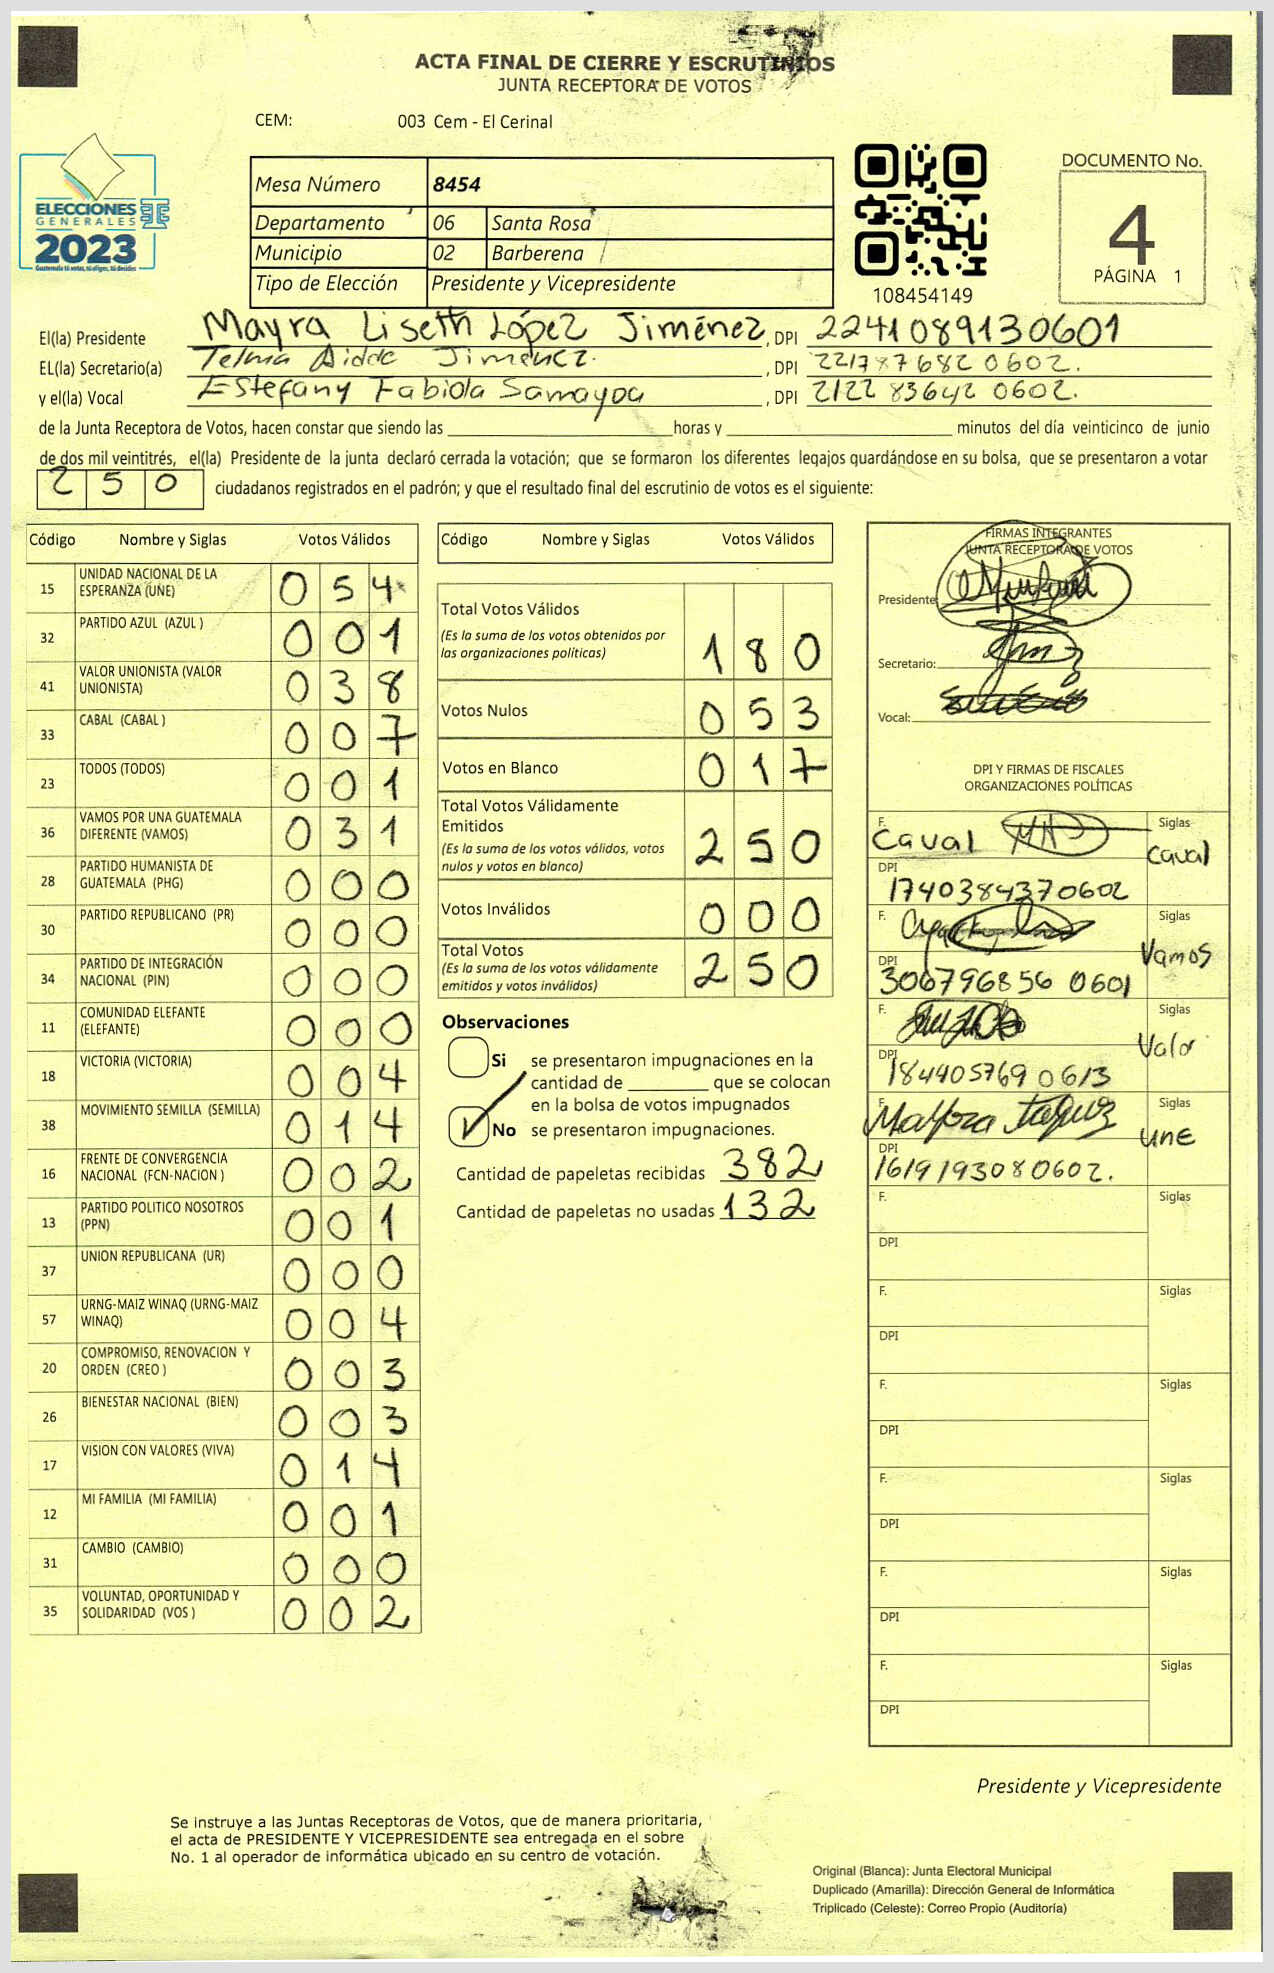 ACTA FINAL DE CIERRE Y ESCRUTINIOS
JUNTA RECEPTORA DE VOTOS
CEM: 003 Cem - El Cerinal
ELECCIONES
GENERALES
2023
Guatemala tú votas, tú eliges, tú decides
Mesa Número 8454
Departamento 06 Santa Rosa
Municipio 02 Barberena
Tipo de Elección Presidente y Vicepresidente
108454149
DOCUMENTO No.
4
PÁGINA 1
El(la) Presidente Mayra Liseth López Jiménez, DPI 2241089130601
EL(la) Secretario(a) Telma Aidde Jiménez. , DPI 221787682 0602.
y el(la) Vocal Estefany Fabiola Samayoa , DPI 2122 83642 0602.
de la Junta Receptora de Votos, hacen constar que siendo las horas y minutos del día veinticinco de junio
de dos mil veintitrés, el(la) Presidente de la junta declaró cerrada la votación; que se formaron los diferentes legajos guardándose en su bolsa, que se presentaron a votar
250 ciudadanos registrados en el padrón; y que el resultado final del escrutinio de votos es el siguiente:
Código Nombre y Siglas Votos Válidos
15 UNIDAD NACIONAL DE LA ESPERANZA (UNE) 054
32 PARTIDO AZUL (AZUL ) 001
41 VALOR UNIONISTA (VALOR UNIONISTA) 038
33 CABAL (CABAL ) 007
23 TODOS (TODOS) 001
36 VAMOS POR UNA GUATEMALA DIFERENTE (VAMOS) 031
28 PARTIDO HUMANISTA DE GUATEMALA (PHG) 000
30 PARTIDO REPUBLICANO (PR) 000
34 PARTIDO DE INTEGRACIÓN NACIONAL (PIN) 000
11 COMUNIDAD ELEFANTE (ELEFANTE) 000
18 VICTORIA (VICTORIA) 004
38 MOVIMIENTO SEMILLA (SEMILLA) 014
16 FRENTE DE CONVERGENCIA NACIONAL (FCN-NACION ) 002
13 PARTIDO POLITICO NOSOTROS (PPN) 001
37 UNION REPUBLICANA (UR) 000
57 URNG-MAIZ WINAQ (URNG-MAIZ WINAQ) 004
20 COMPROMISO, RENOVACION Y ORDEN (CREO ) 003
26 BIENESTAR NACIONAL (BIEN) 003
17 VISION CON VALORES (VIVA) 014
12 MI FAMILIA (MI FAMILIA) 001
31 CAMBIO (CAMBIO) 000
35 VOLUNTAD, OPORTUNIDAD Y SOLIDARIDAD (VOS ) 002
Código Nombre y Siglas Votos Válidos
Total Votos Válidos
(Es la suma de los votos obtenidos por
las organizaciones políticas) 180
Votos Nulos 053
Votos en Blanco 017
Total Votos Válidamente
Emitidos
(Es la suma de los votos válidos, votos
nulos y votos en blanco) 250
Votos Inválidos 000
Total Votos
(Es la suma de los votos válidamente
emitidos y votos inválidos) 250
Observaciones
Si se presentaron impugnaciones en la
cantidad de que se colocan
en la bolsa de votos impugnados
No se presentaron impugnaciones.
Cantidad de papeletas recibidas 382
Cantidad de papeletas no usadas 132
FIRMAS INTEGRANTES
JUNTA RECEPTORA DE VOTOS
Presidente:
Secretario:
Vocal:
DPI Y FIRMAS DE FISCALES
ORGANIZACIONES POLÍTICAS
F. Caval Siglas Caval
DPI 1740384370602
F. Siglas Vamos
DPI 306796856 0601
F. Siglas Valor
DPI 184405769 0613
F. Siglas UNE
DPI 1619193080602.
F. Siglas
DPI
F. Siglas
DPI
F. Siglas
DPI
F. Siglas
DPI
F. Siglas
DPI
F. Siglas
DPI
Presidente y Vicepresidente
Se instruye a las Juntas Receptoras de Votos, que de manera prioritaria,
el acta de PRESIDENTE Y VICEPRESIDENTE sea entregada en el sobre
No. 1 al operador de informática ubicado en su centro de votación.
Original (Blanca): Junta Electoral Municipal
Duplicado (Amarilla): Dirección General de Informática
Triplicado (Celeste): Correo Propio (Auditoría)